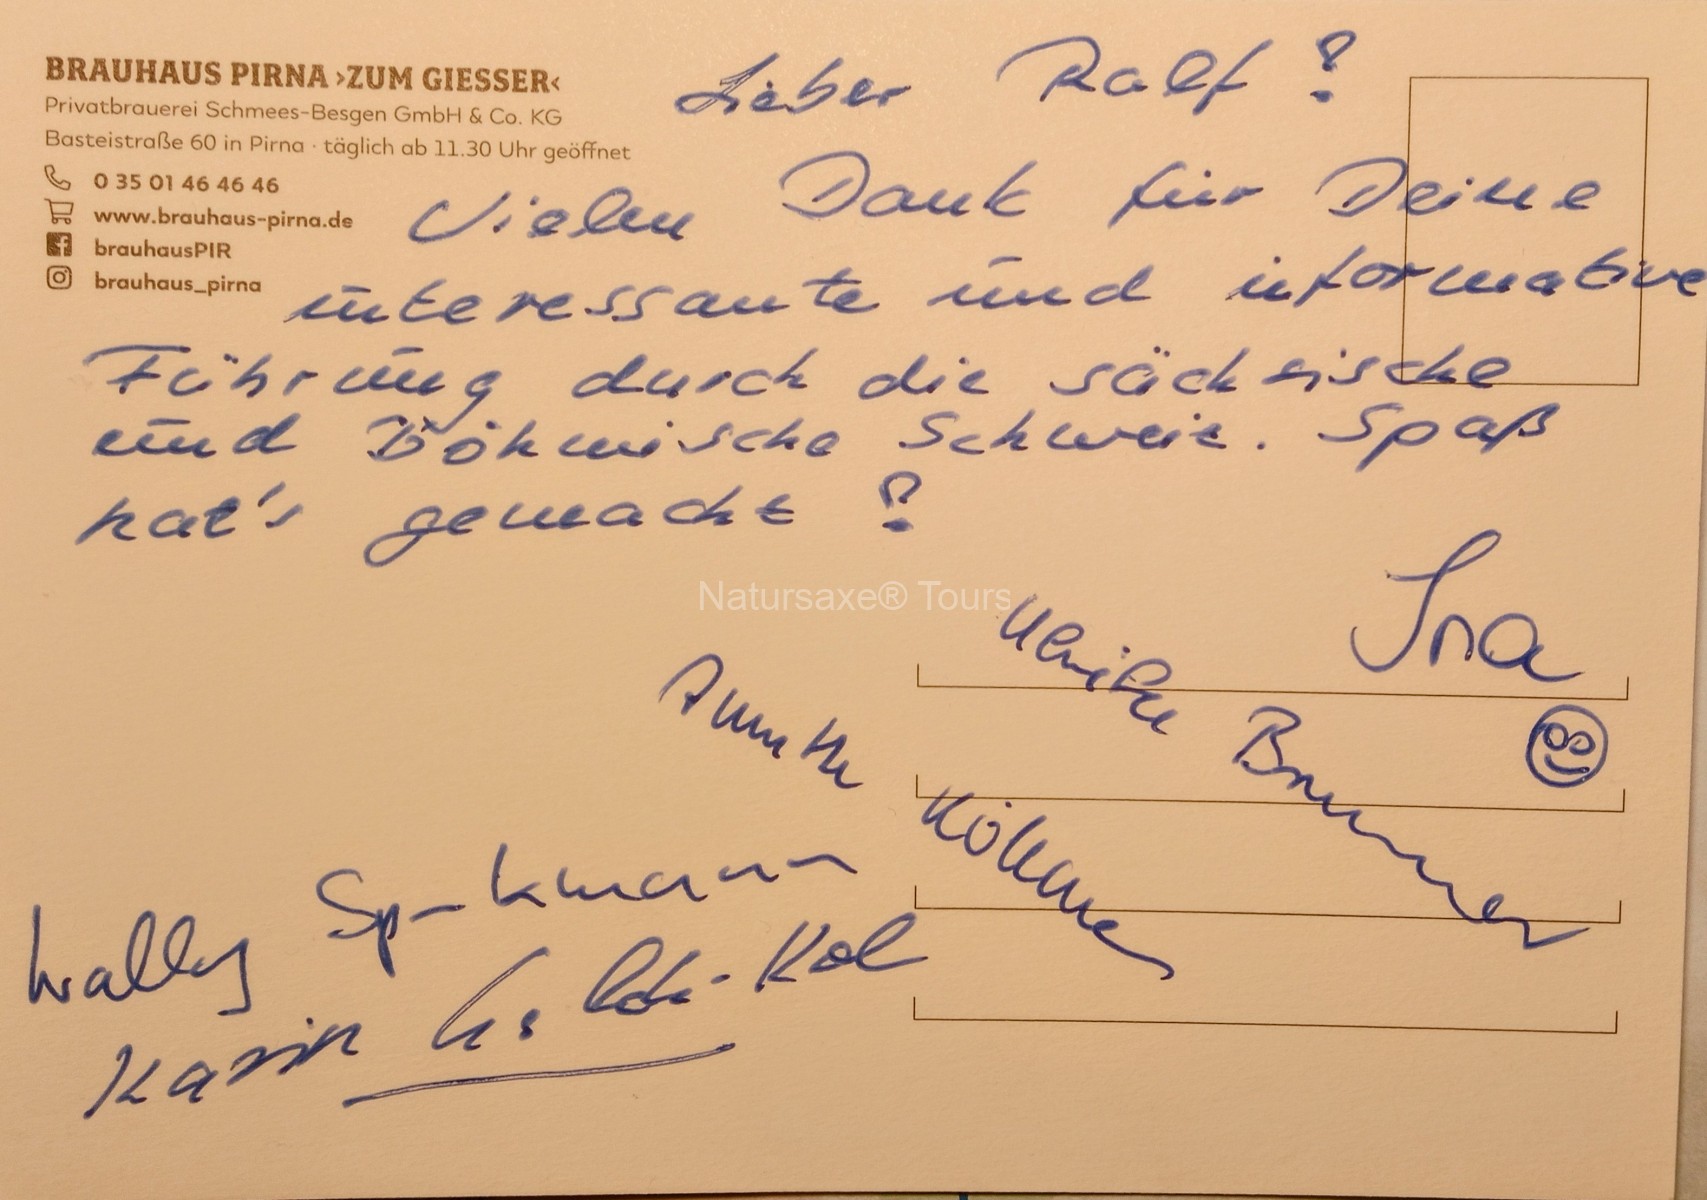 BRAUHAUS PIRNA ›ZUM GIESSER‹
Privatbrauerei Schmees-Besgen GmbH & Co. KG
Basteistraße 60 in Pirna · täglich ab 11.30 Uhr geöffnet
0 35 01 46 46 46
www.brauhaus-pirna.de
brauhausPIR
brauhaus_pirna
Lieber Ralf!
Vielen Dank für Deine
interessante und informative
Führung durch die sächsische
und Böhmische Schweiz. Spaß
hat's gemacht!
Natursaxe® Tours
Ina
Ulrike Brunner
Annette
Wally
Karin